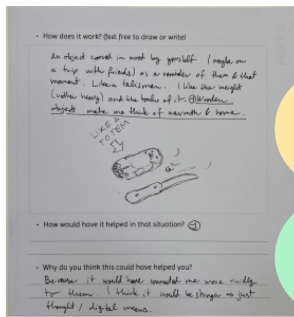 How does it work? (feel free to draw or write)
An object carved in wood by yourself (maybe on
a trip with friends) as a reminder of them & that
moment. Like a talisman. I like the weight
(rather heavy) and the touch of it. Wooden
objects make me think of warmth & home.
LIKE A
TOTEM
How would have it helped in that situation?
Why do you think this could have helped you?
Because it would have connected me more
to them. I think it would be stronger as just
thought / digital means.